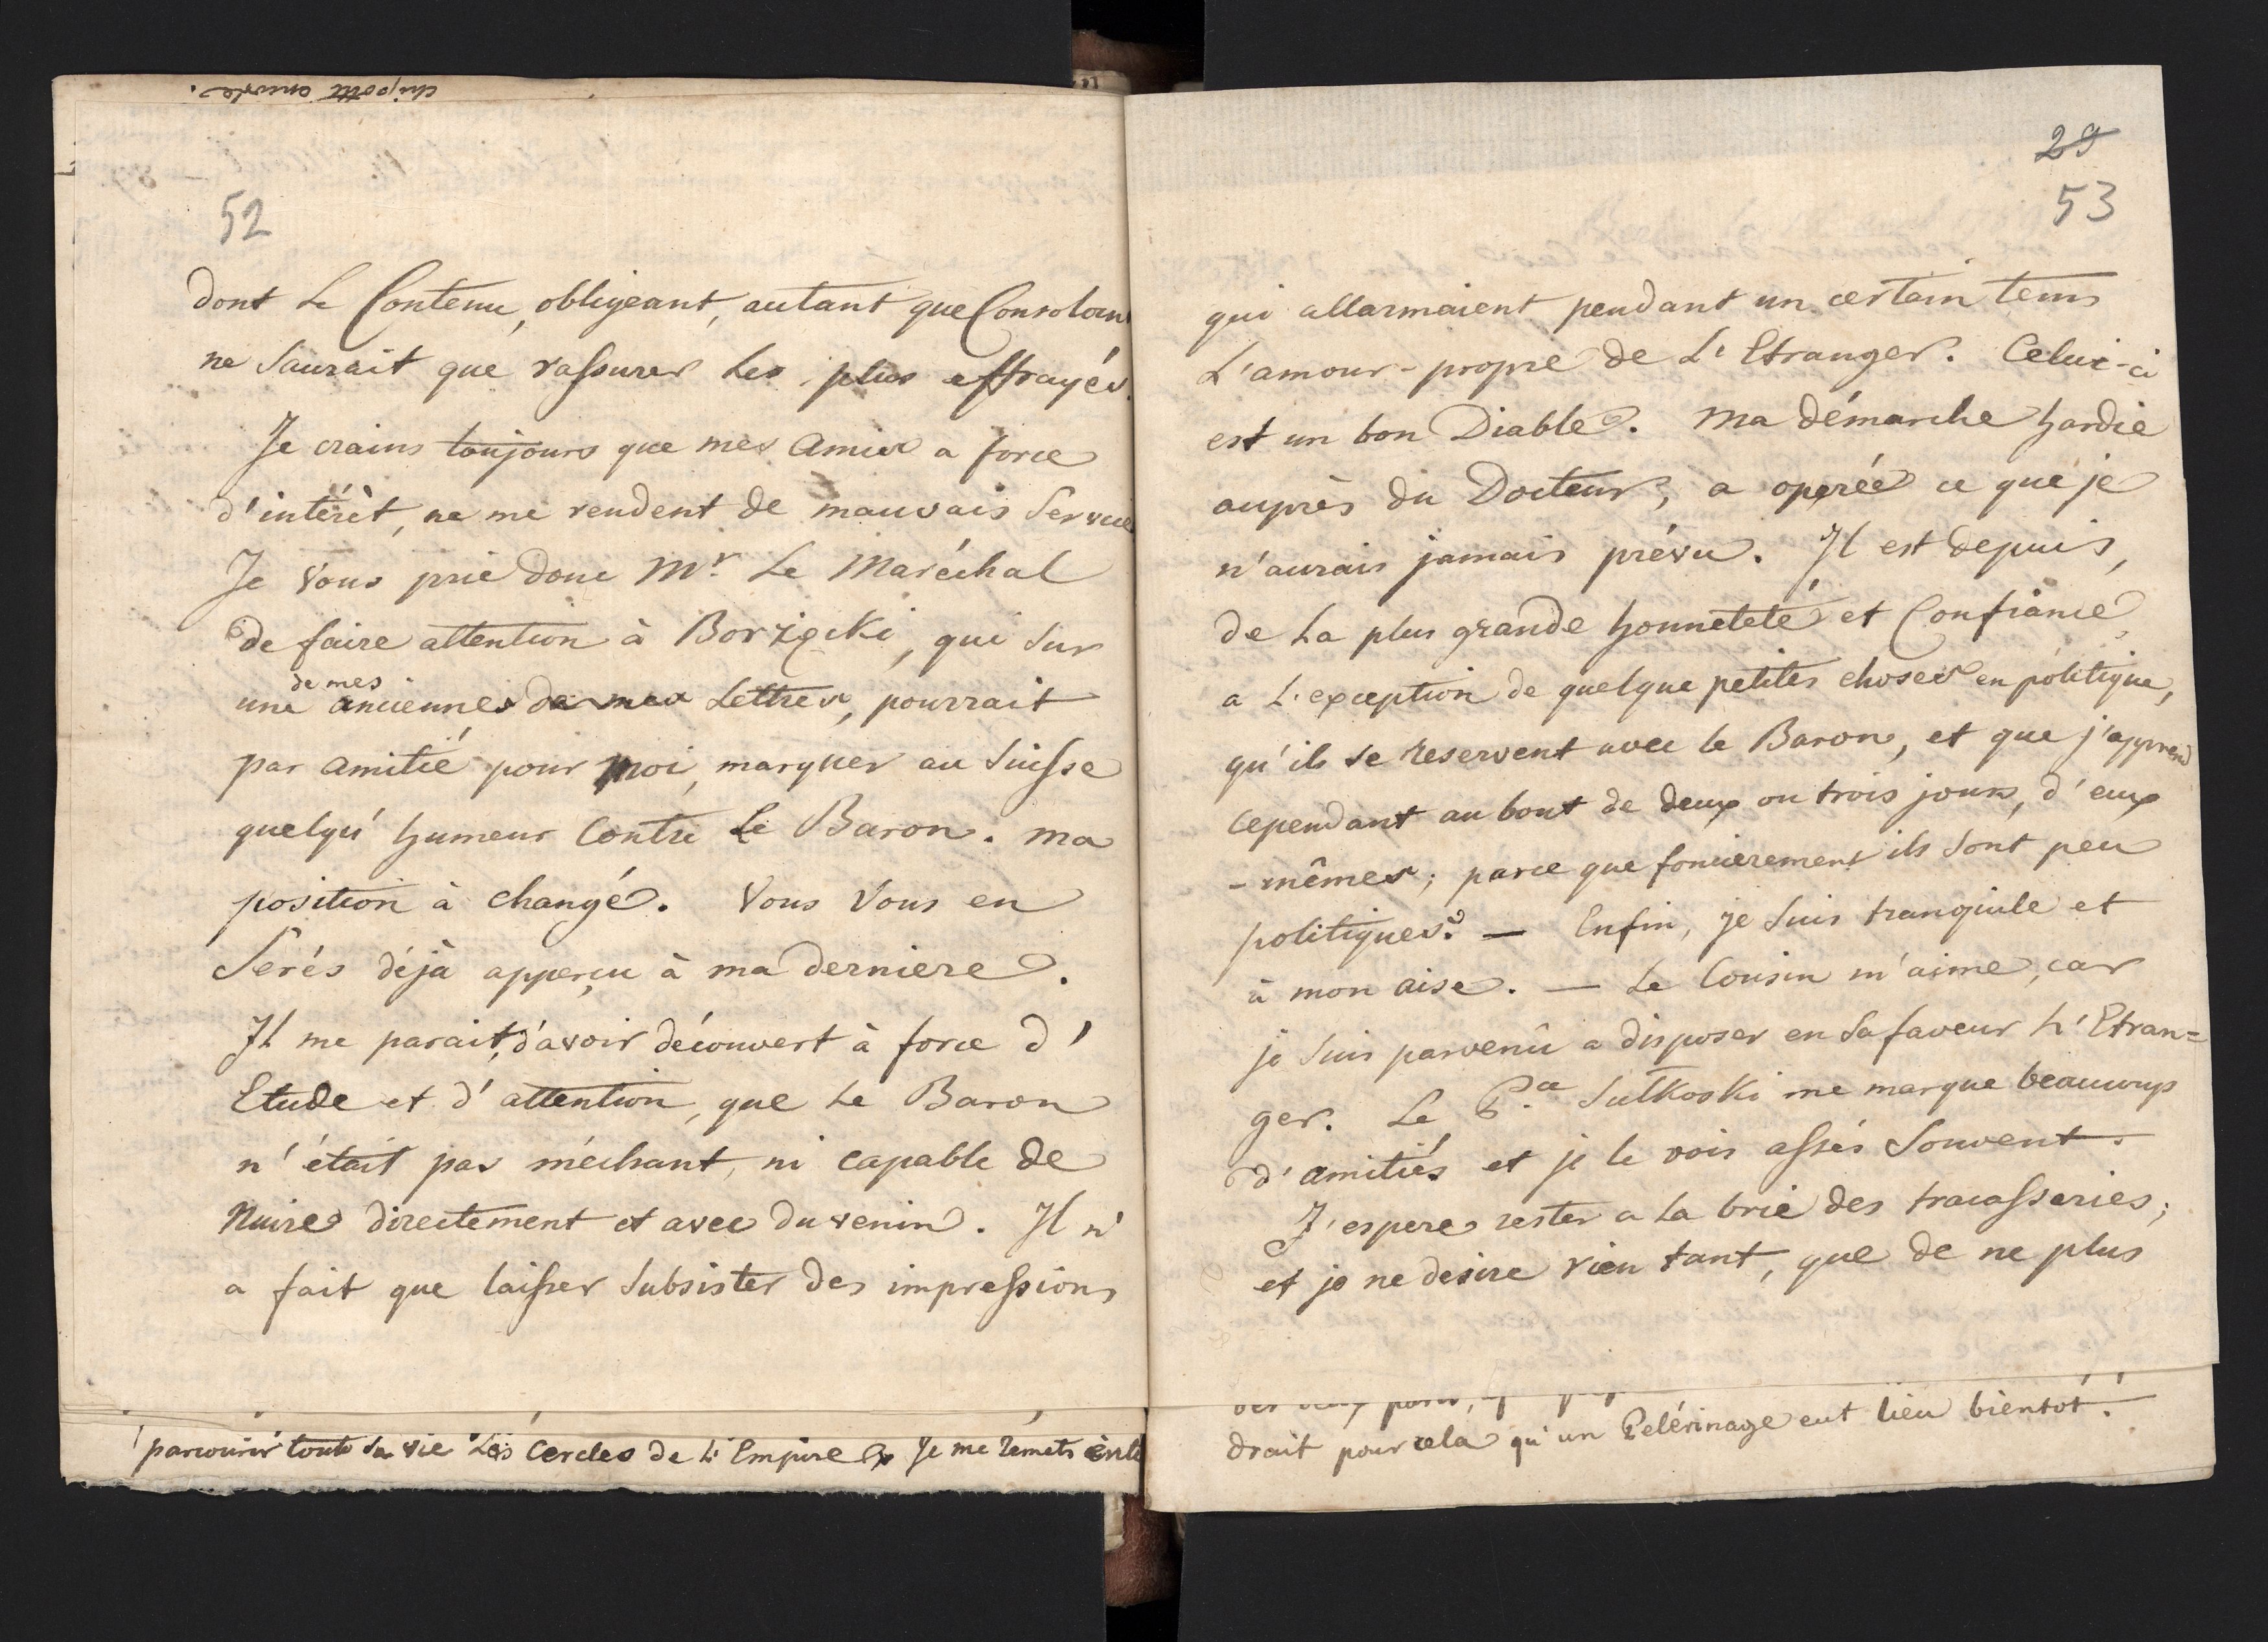 52
dont Le Contenu, obligeant, autant que Consolant
ne Saurait que rassurer Les plus effrayés.
Je crains toujours que mes Amis a force
d'intérêt, ne me rendent de mauvais Services
Je vous prie donc Mr. Le Maréchal
de faire attention à Borzęcki, qui sur
de mes
une anciennes de mes Lettres, pourrait
par amitié pour moi, marquer au Suisse
quelqu' humeur Contre Le Baron. Ma
position à changé. Vous Vous en
Serés déjà apperçu à ma derniere.
Il me parait, d'avoir découvert à force d'
Etude et d' attention, que Le Baron
n' était pas méchant, ni capable de
Nuire directement et avec du venin. Il n'
a fait que laisser Subsister des impressions
parcourir toute sa vie Les Cercles de L'Empire Je me remets
29
53
qui allarmaient pendant un certain tems
L'amour-propre de L'Etranger. Celui-ci
est un bon Diable. Ma démarche hardie
auprès du Docteur, a opérée ce que je
n'aurais jamais prévu. Il est depuis,
de La plus grande honnêteté et Confiance,
a L'exception de quelque petites choses en politique,
qu'ils se reservent avec le Baron, et que j'apprend
Cependant au bout de deux ou trois jours, d'eux
-mêmes; parce que foncierement ils Sont peu
politiques. — Enfin, je Suis tranquile et
à mon aise. — Le Cousin m'aime, car
je Suis parvenû a disposer en Sa faveur L'Etran=
ger. Le P.ce Sulkoski me marque beaucoup
d'amitiés et je le vois assés Souvent.
J'espere rester a La brie des tracasseries;
et je ne desire rien tant, que de ne plus
drait pour cela qu'un Pelérinage eut lieu bientôt.